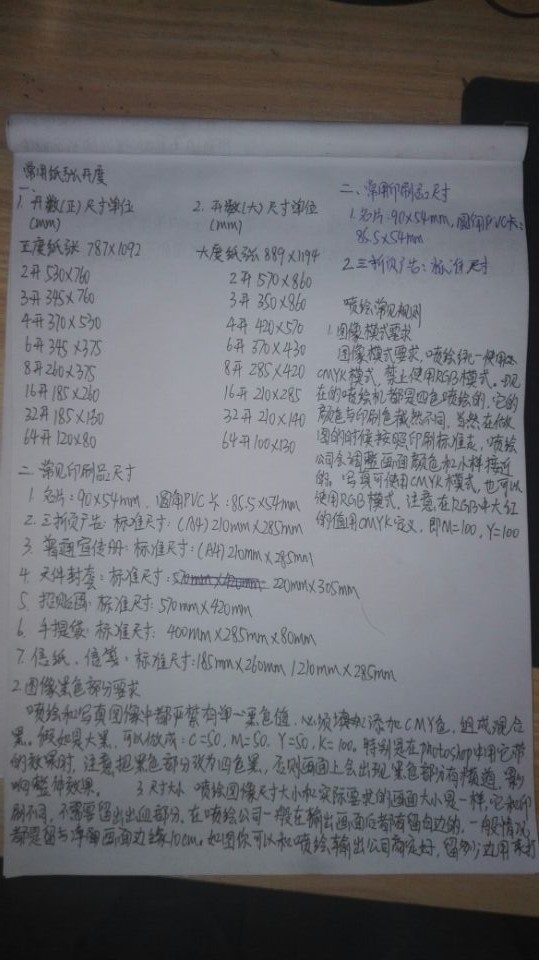 常用纸张开度
一、
1. 开数(正)尺寸单位
(mm)
正度纸张 787×1092
2开 530×760
3开 345×760
4开 370×530
6开 345×375
8开 260×375
16开 185×260
32开 185×130
64开 120×80
2. 开数(大)尺寸单位
(mm)
大度纸张 889×1194
2开 570×860
3开 350×860
4开 420×570
6开 370×430
8开 285×420
16开 210×285
32开 210×140
64开 100×130
二、常用印刷品尺寸
1. 名片:90×54mm, 圆角PVC卡:
85.5×54mm
2. 三折广告:标准尺寸
喷绘常见规则
1. 图像模式要求
图像模式要求,喷绘统一使用
CMYK模式,禁止使用RGB模式。现
在的喷绘机都是四色喷绘的,它的
颜色与印刷色截然不同,当然在做
图的时候按照印刷标准走,喷绘
公司会调整画面颜色和小样接近
的。写真可使用CMYK模式,也可以
使用RGB模式,注意在RGB中大红
的值用CMYK定义,即M=100, Y=100
二、常见印刷品尺寸
1. 名片:90×54mm, 圆角PVC卡:85.5×54mm
2. 三折页产品:标准尺寸:(A4)210mm×285mm
3. 普通宣传册:标准尺寸:(A4)210mm×285mm
4. 文件封套:标准尺寸: 220mm×305mm
5. 招贴画:标准尺寸:570mm×420mm
6. 手提袋:标准尺寸: 400mm×285mm×80mm
7. 信纸、信笺:标准尺寸:185mm×260mm / 210mm×285mm
2. 图像黑色部分要求
喷绘和写真图像中都严禁有单一黑色值,必须填加添加CMY色,组成混合
黑。假如是大黑,可以做成:C=50, M=50, Y=50, K=100。特别是在photoshop中用它带
的效果时,注意把黑色部分改为四色黑,否则画面上会出现黑色部分有横道,影
响整体效果。 3 尺寸大小 喷绘图像尺寸大小和实际要求的画面大小是一样,它和印
刷不同,不需要留出出血部分,在喷绘公司一般在输出画面后都有留白边的,一般情况
都是留与净画画面边缘10cm。如图你可以和喷绘输出公司商定好,留多少边用来打